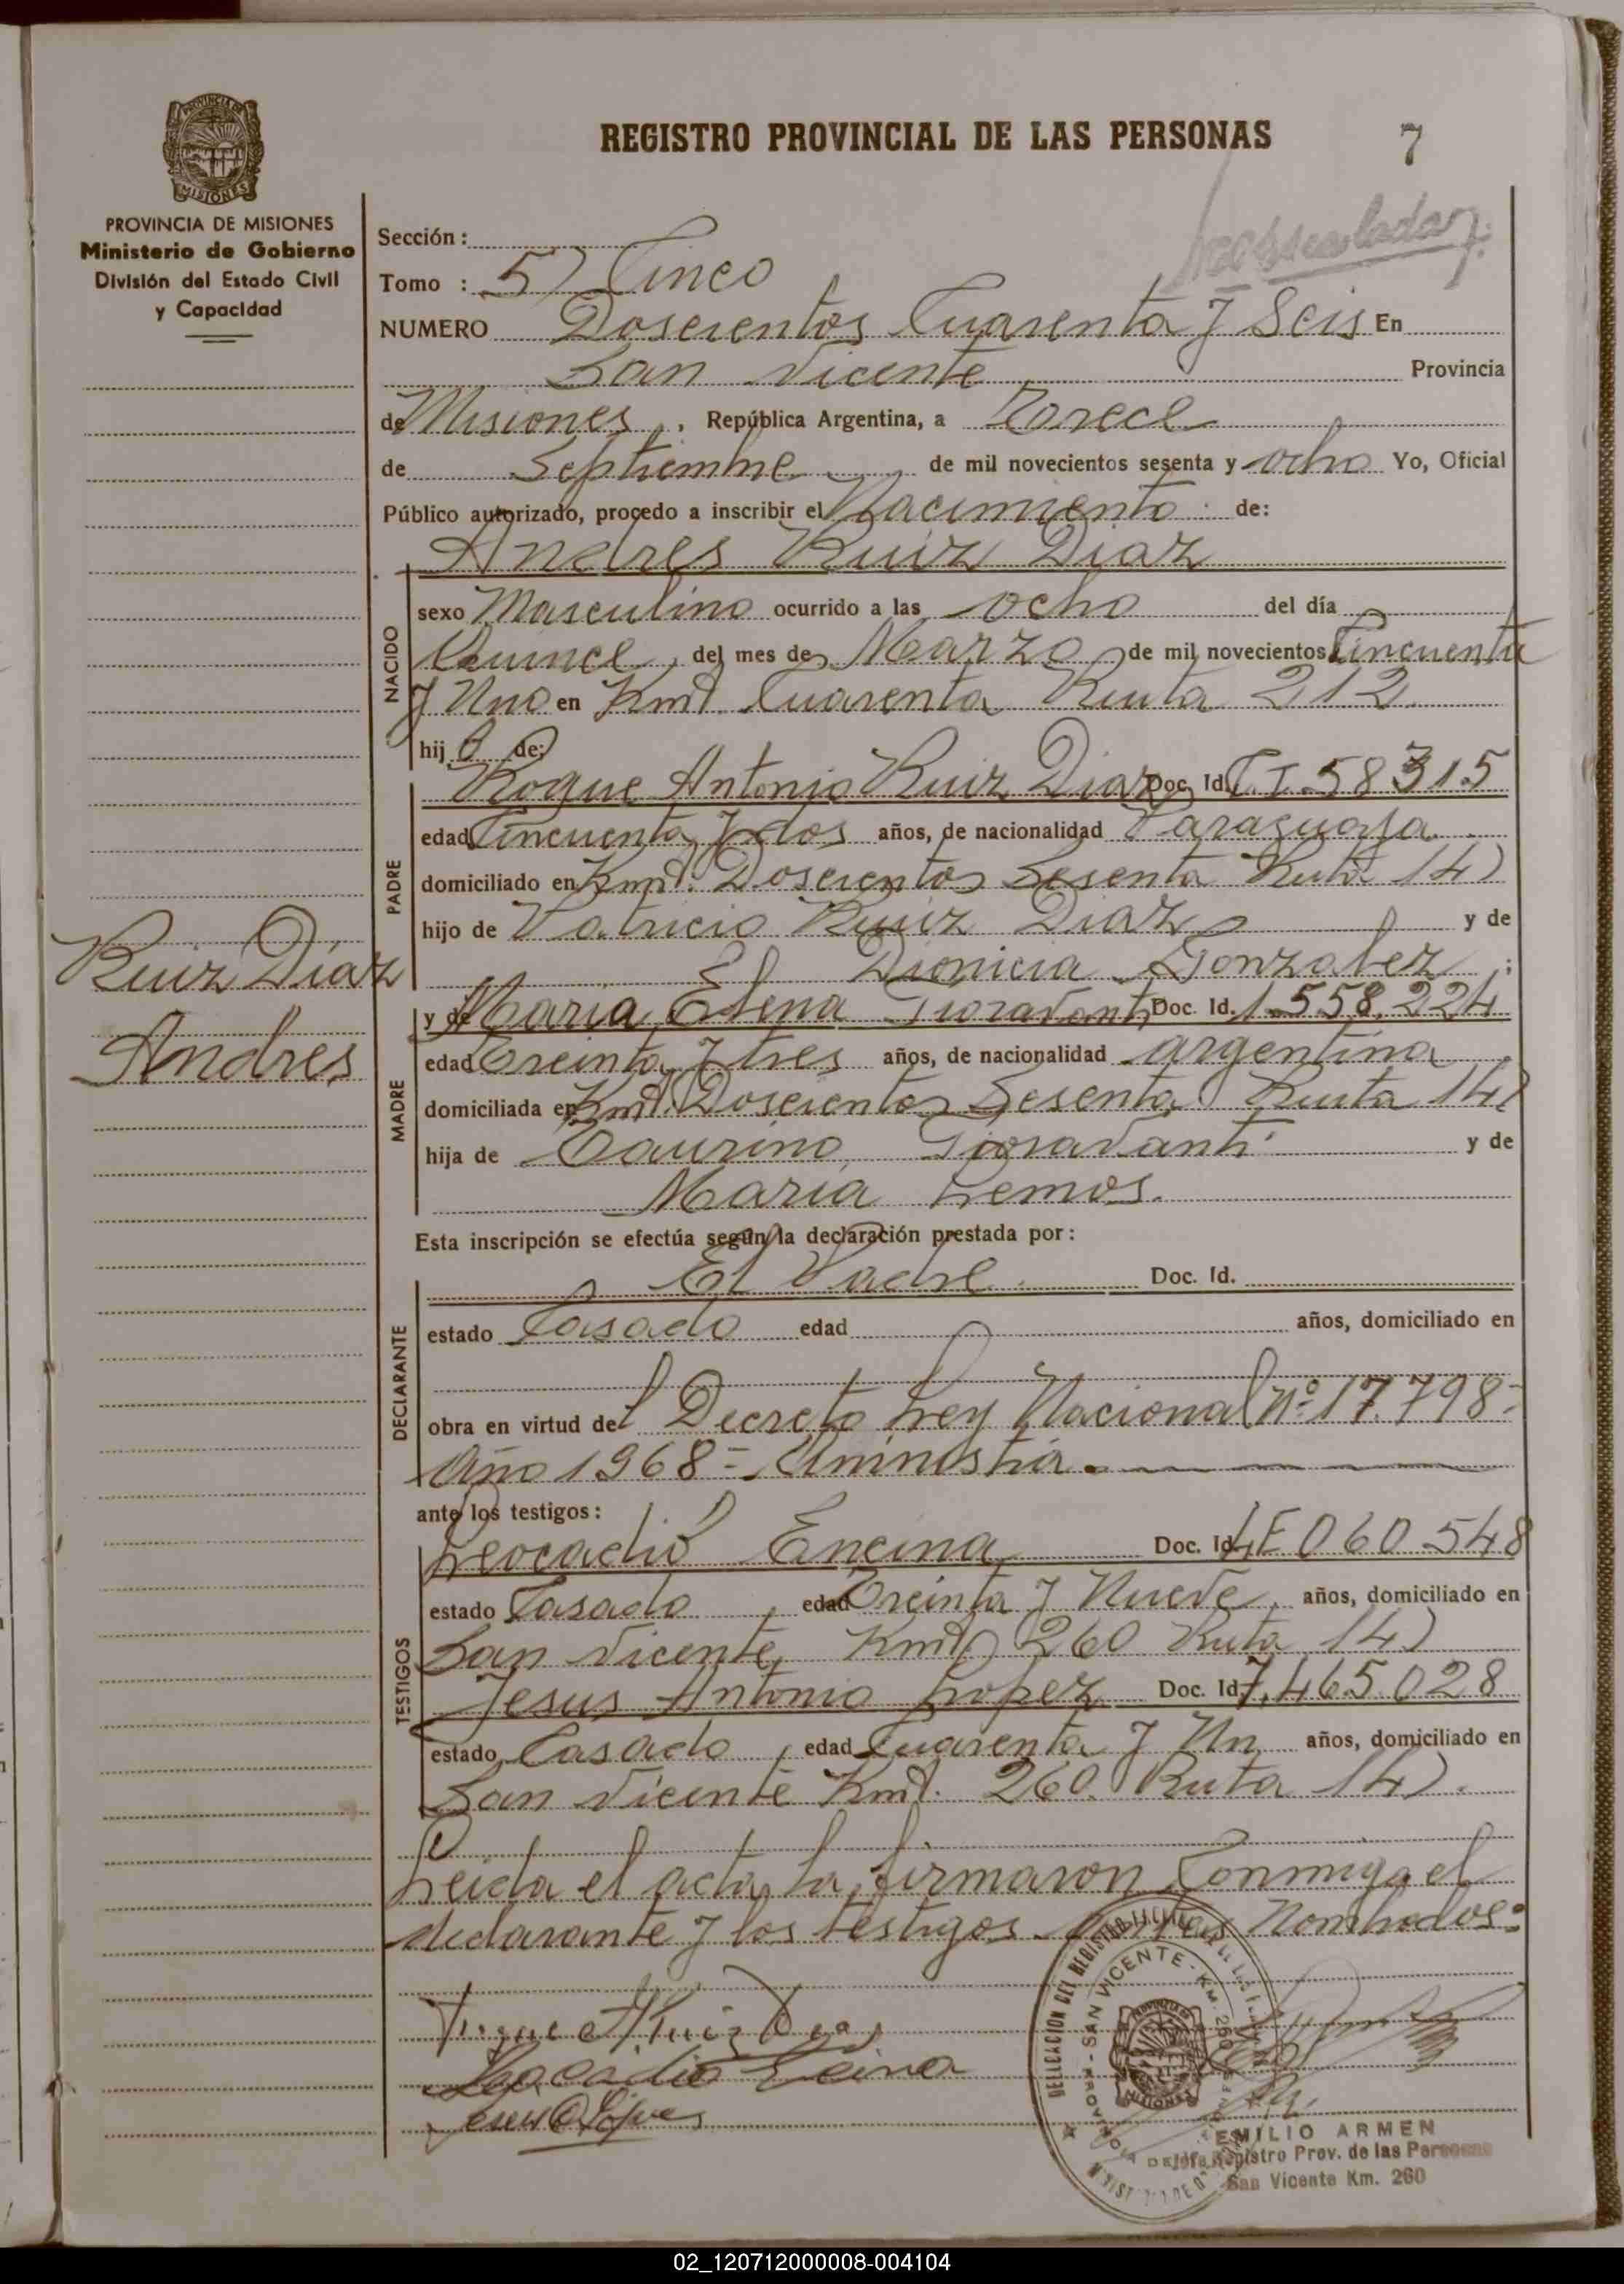 REGISTRO PROVINCIAL DE LAS PERSONAS 7
PROVINCIA DE
MISIONES
PROVINCIA DE MISIONES
Ministerio de Gobierno
División del Estado Civil
y Capacidad
Sección :
Tomo : 5) Cinco
NUMERO Doscientos Cuarenta y Seis En
San Vicente Provincia
de Misiones, República Argentina, a Torece
de Septiembre de mil novecientos sesenta y ocho Yo, Oficial
Público autorizado, procedo a inscribir el Nacimiento de:
Andres Ruiz Diaz
NACIDO
sexo Masculino ocurrido a las ocho del día
Quince, del mes de Marzo de mil novecientos Cincuenta
y Uno en Kmt. Cuarenta Ruta 212.
hij o de:
PADRE
Roque Antonio Ruiz Diaz Doc. Id. C.I. 58315
edad Cincuenta y dos años, de nacionalidad Paraguaya.
domiciliado en Kmt. Doscientos Sesenta Ruta 14)
hijo de Patricio Ruiz Diaz y de
Dionicia Gonzalez ;
Ruiz Díaz
Andres
MADRE
y de Maria Elena Fioravanti Doc. Id. 1.558.224
edad Treinta y tres años, de nacionalidad argentina
domiciliada en Kmt. Doscientos Sesenta Ruta 14)
hija de Taurino Fioravanti y de
Maria Lemos.
Esta inscripción se efectúa según la declaración prestada por :
DECLARANTE
El Padre. Doc. Id.
estado Casado edad años, domiciliado en
obra en virtud del Decreto Ley Nacional Nº 17.798-
Año 1968- Aminostia.
ante los testigos :
TESTIGOS
Leocadio Encina Doc. Id. LE 060.548
estado Casado, edad Treinta y Nueve, años, domiciliado en
San Vicente, Kmt) 260 Ruta 14)
Jesus Antonio Lopez Doc. Id 7.465.028
estado Casado, edad Cuarenta y Un años, domiciliado en
San Vicente Kmt. 260. Ruta 14).
Leida el acta, la firmaron Conmigo el
declarante y los testigos Nombrados:
DELEGACION DEL REGISTRO
SAN VICENTE - KM. 260
MISIONES
EMILIO ARMEN
Jefe Registro Prov. de las Personas
San Vicente Km. 260
02_120712000008-004104